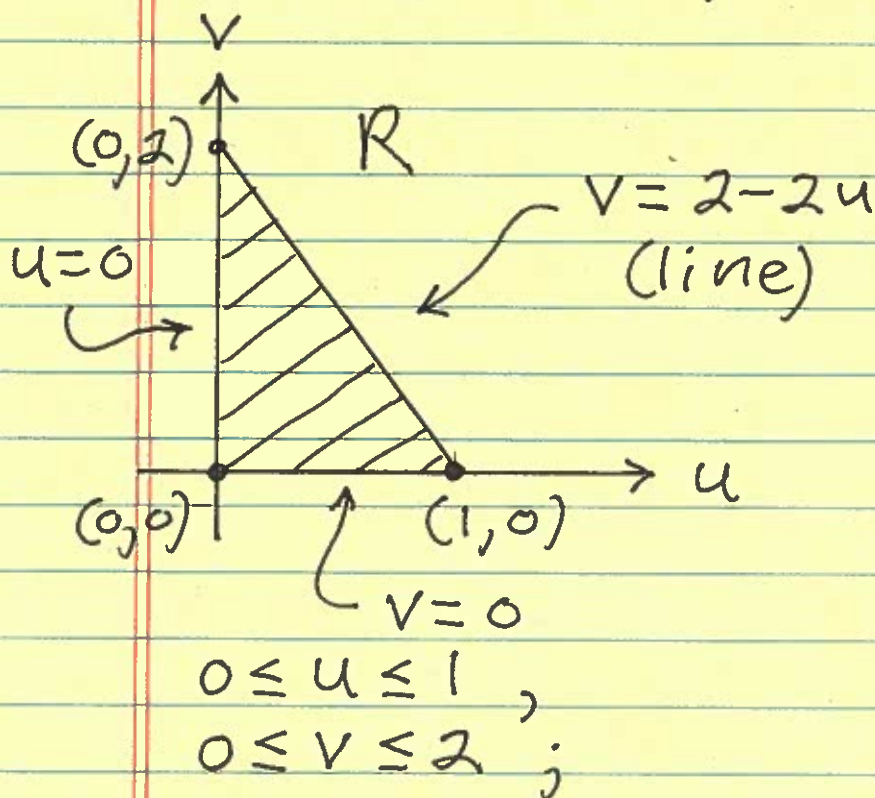 V
(0,2)
R
V = 2-2u
(line)
u=0
u
(0,0)
(1,0)
V=0
0 ≤ u ≤ 1 ,
0 ≤ V ≤ 2 ;